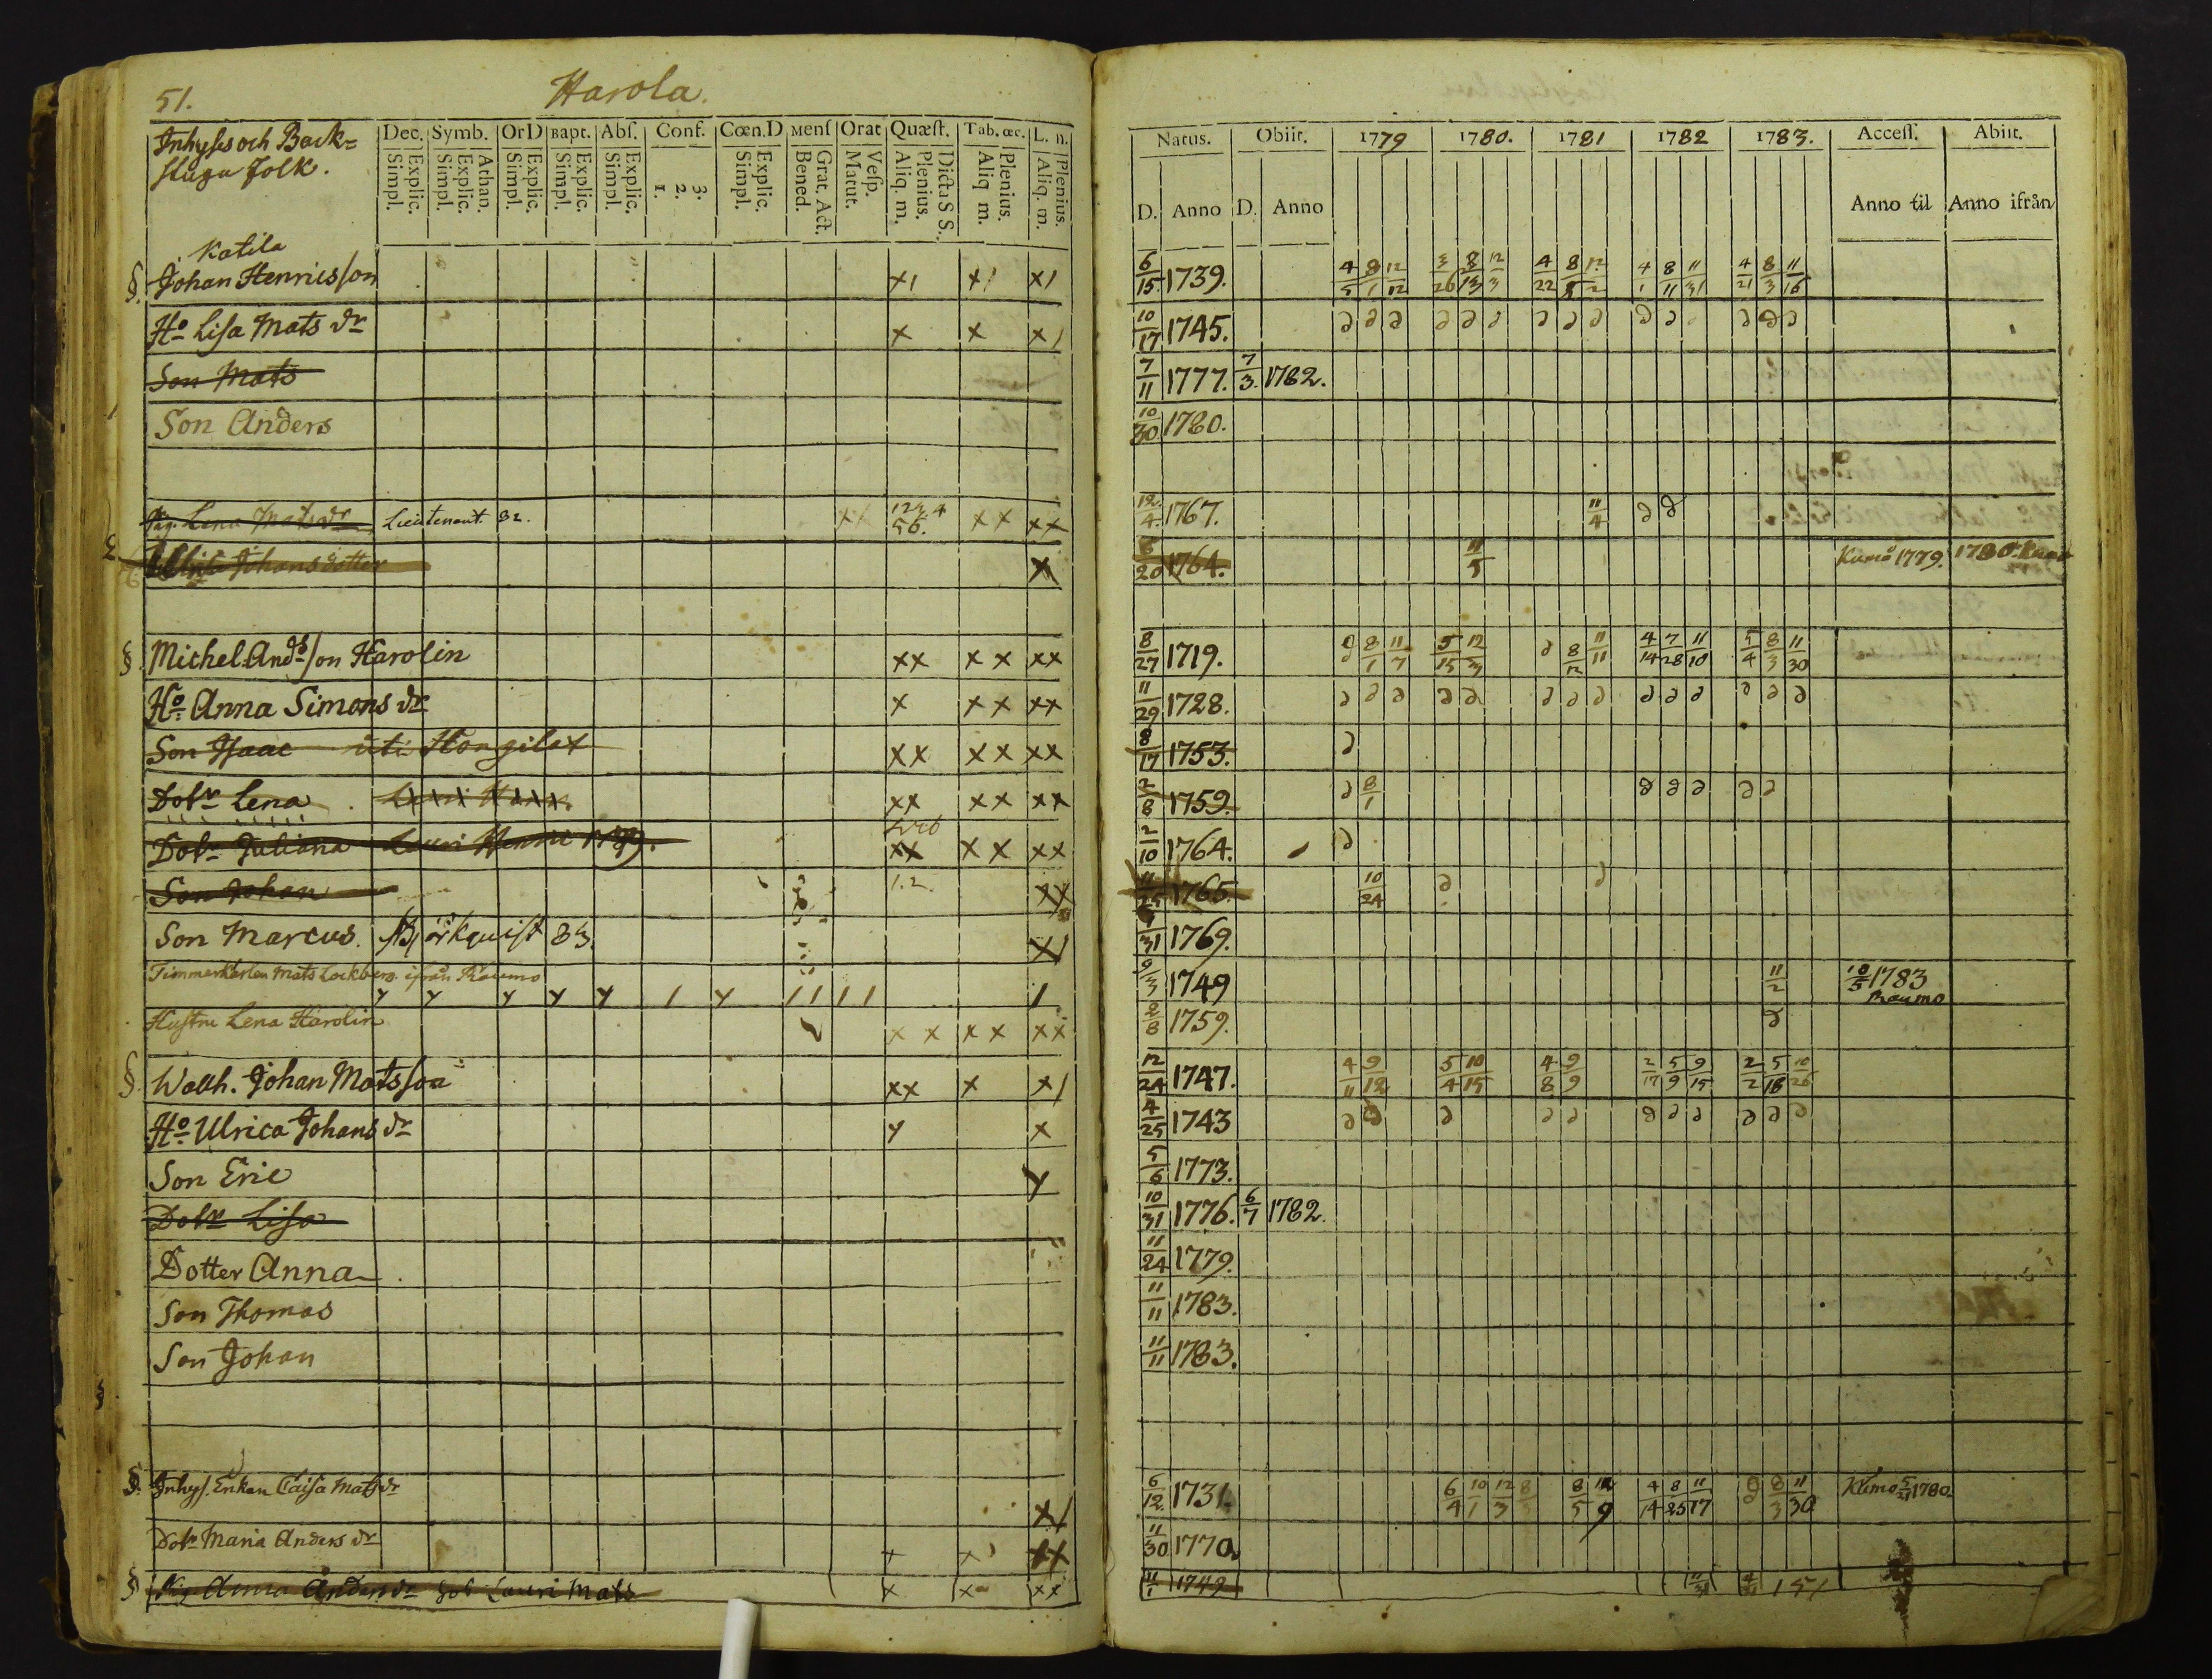 51.
Harola.
Inhyses och Back=
stugu folk.
Dec. Symb. OrD Bapt. Abſ. Conf. Cœn.D Menſ Orat Quæſt. Tab. œc. L. n.
Explic. Simpl. Athan. Explic. Simpl. Explic. Simpl. Explic. Simpl. Explic. Simpl. 3. 2. 1. Explic. Simpl. Grat. Act. Bened. Veſp. Matut. Dicta S S. Plenius. Aliq. m. Plenius. Aliq m. Plenius. Aliq. m.
Natus. Obiit. 1779 1780. 1781 1782 1783. Acceſſ. Abiit.
D. Anno D. Anno Anno til Anno ifrån
Katila
§. Johan Henricsson x1 x1 x1 6/15 1739. 4/5 8/1 12/12 3/26 8/13 12/3 4/22 8/5 12/2 4/1 8/11 11/31 4/21 8/3 11/16
Ho Lisa Mats dr x x x1 10/17 1745.
Son Mats 7/11 1777. 7/3. 1782.
Son Anders 10/30 1780.
Pig. Lena Mats dr Lieutenant. 82. xx 123.4 56. xx xx 12/4 1767. 11/4
Ulrica Johans dotter x 6/20 1764. 11/5 Kumo 1779. 1780.
§ Michel Andsson Harolin xx xx xx 8/27 1719. 8/1 11/7 5/15 12/3 8/12 11/11 4/14 7/28 11/10 5/4 8/3 11/30
Ho Anna Simons dr x xx xx 11/29 1728.
Son Isaac uti xx xx xx 8/17 1753.
Dotr Lena xx xx xx 2/8 1759. 8/1
Dotr Juliana Lauri xx xx xx 2/10 1764.
Son Johan 1.2. xx 11/25 1765. 10/24
Son Marcus. Björkquist 83. x1 /31 1769.
Timmerkarlen Mats Lockberg ifrån Raumo
y y y y y 1 y 11 11 1 9/3 1749 11/2 10/5 1783
Raumo
Hustru Lena Harolin x x x x xx 2/8 1759.
§. Wallh. Johan Matsson xx x x1 12/24 1747. 4/11 9/12 5/4 10/15 4/8 9/9 2/17 5/9 9/15 2/2 5/18 10/26
Ho Ulrica Johans dr y x 4/25 1743
Son Eric y 5/6 1773.
Dotr Lisa 10/31 1776. 6/7 1782.
Dotter Anna 11/24 1779.
Son Thomas 11/11 1783.
Son Johan 11/11 1783.
§. Inhys. Enkan Caisa Mats dr x1 6/12 1731. 6/4 10/1 12/3 8/5 4/14 8/25 11/17 8/3 11/30 Kumo 5/21 1780.
Dotr Maria Anders dr x x xx 11/30 1770.
§ Pig Anna Anders dr Lauri Mats x x xx 11/1 1749